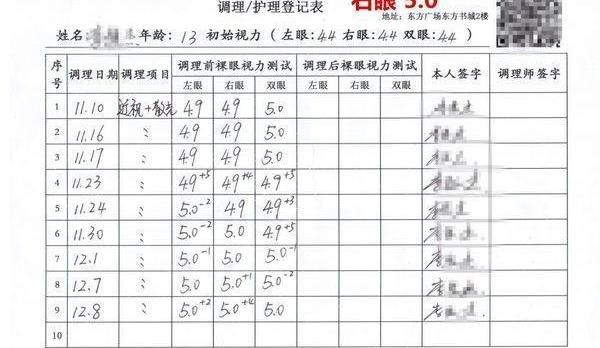 调理/护理登记表 右眼 5.0
地址：东方广场东方书城2楼
姓名 年龄：13 初始视力（左眼：4.4 右眼：4.4 双眼：4.4）
序号 调理日期 调理项目 调理前裸眼视力测试 调理后裸眼视力测试 本人签字 调理师签字
左眼 右眼 双眼 左眼 右眼 双眼
1 11.10 近视+散光 4.9 4.9 5.0
2 11.16 〃 4.9 4.9 5.0
3 11.17 〃 4.9 4.9 5.0
4 11.23 〃 4.9+5 4.9+4 4.9+5
5 11.24 〃 5.0-2 4.9 4.9+3
6 11.30 〃 5.0-2 5.0 4.9+5
7 12.1 〃 5.0-1 5.0 5.0-1
8 12.7 〃 5.0 5.0+1 5.0-2
9 12.8 〃 5.0+2 5.0+4 5.0
10